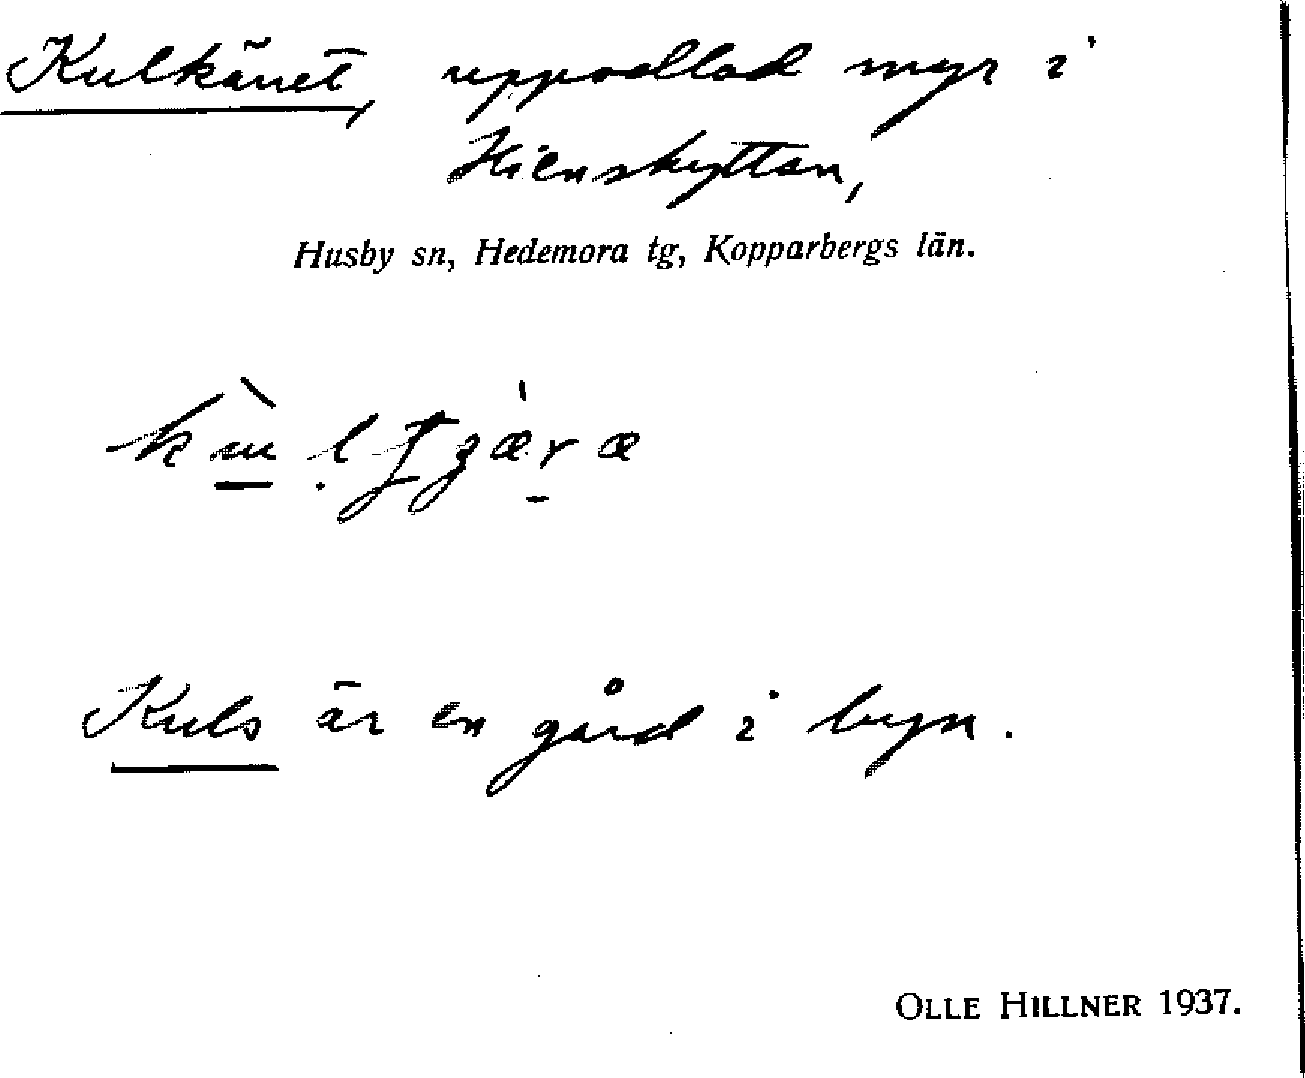 Kulkäret, uppodlad myr i
Hienshyttan,
Husby sn, Hedemora tg, Kopparbergs län.
Kuls är en gård i byn.
OLLE HILLNER 1937.